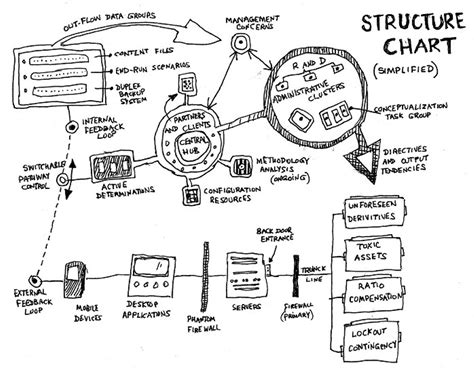 STRUCTURE
CHART
(SIMPLIFIED)
OUT-FLOW DATA GROUPS
MANAGEMENT
CONCERNS
CONTENT FILES
END-RUN SCENARIOS
DUPLEX
BACKUP
SYSTEM
R AND D
ADMINISTRATIVE
CLUSTERS
CONCEPTUALIZATION
TASK GROUP
PARTNERS
AND CLIENTS
CENTRAL
HUB
INTERNAL
FEEDBACK
LOOP
SWITCHABLE
PATHWAY
CONTROL
ACTIVE
DETERMINATORS
METHODOLOGY
ANALYSIS
(ONGOING)
CONFIGURATION
RESOURCES
DIRECTIVES
AND OUTPUT
TENDENCIES
BACK DOOR
ENTRANCE
UNFORESEEN
DERIVITIVES
TOXIC
ASSETS
RATIO
COMPENSATION
LOCKOUT
CONTINGENCY
TRUNCK
LINE
EXTERNAL
FEEDBACK
LOOP
MOBILE
DEVICES
DESKTOP
APPLICATIONS
PHANTOM
FIREWALL
SERVERS
FIREWALL
(PRIMARY)